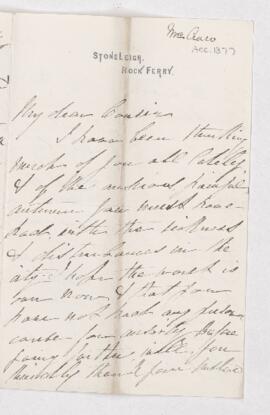 Mrs Craw
Acc. 1377
STONELEIGH,
ROCK FERRY.
My dear Cousin
I have been thinking
much of you all lately
& of the anxious painful
autumn you must have
had with the sickness
& disturbances in the
city - I hope the worst is
over now & that you
have not had any further
cause for anxiety
Will you
kindly thank your father